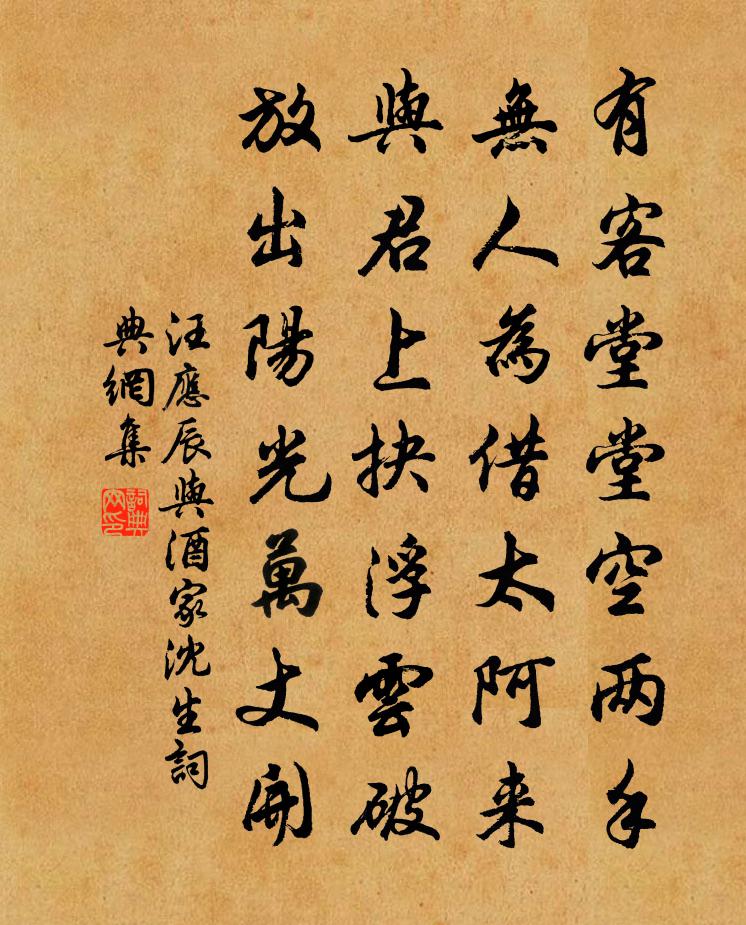 有客堂堂空两手
無人為借太阿来
與君上抉浮雲破
放出陽光萬丈開
汪應辰與酒家沈生詞
典網集
詞典网印